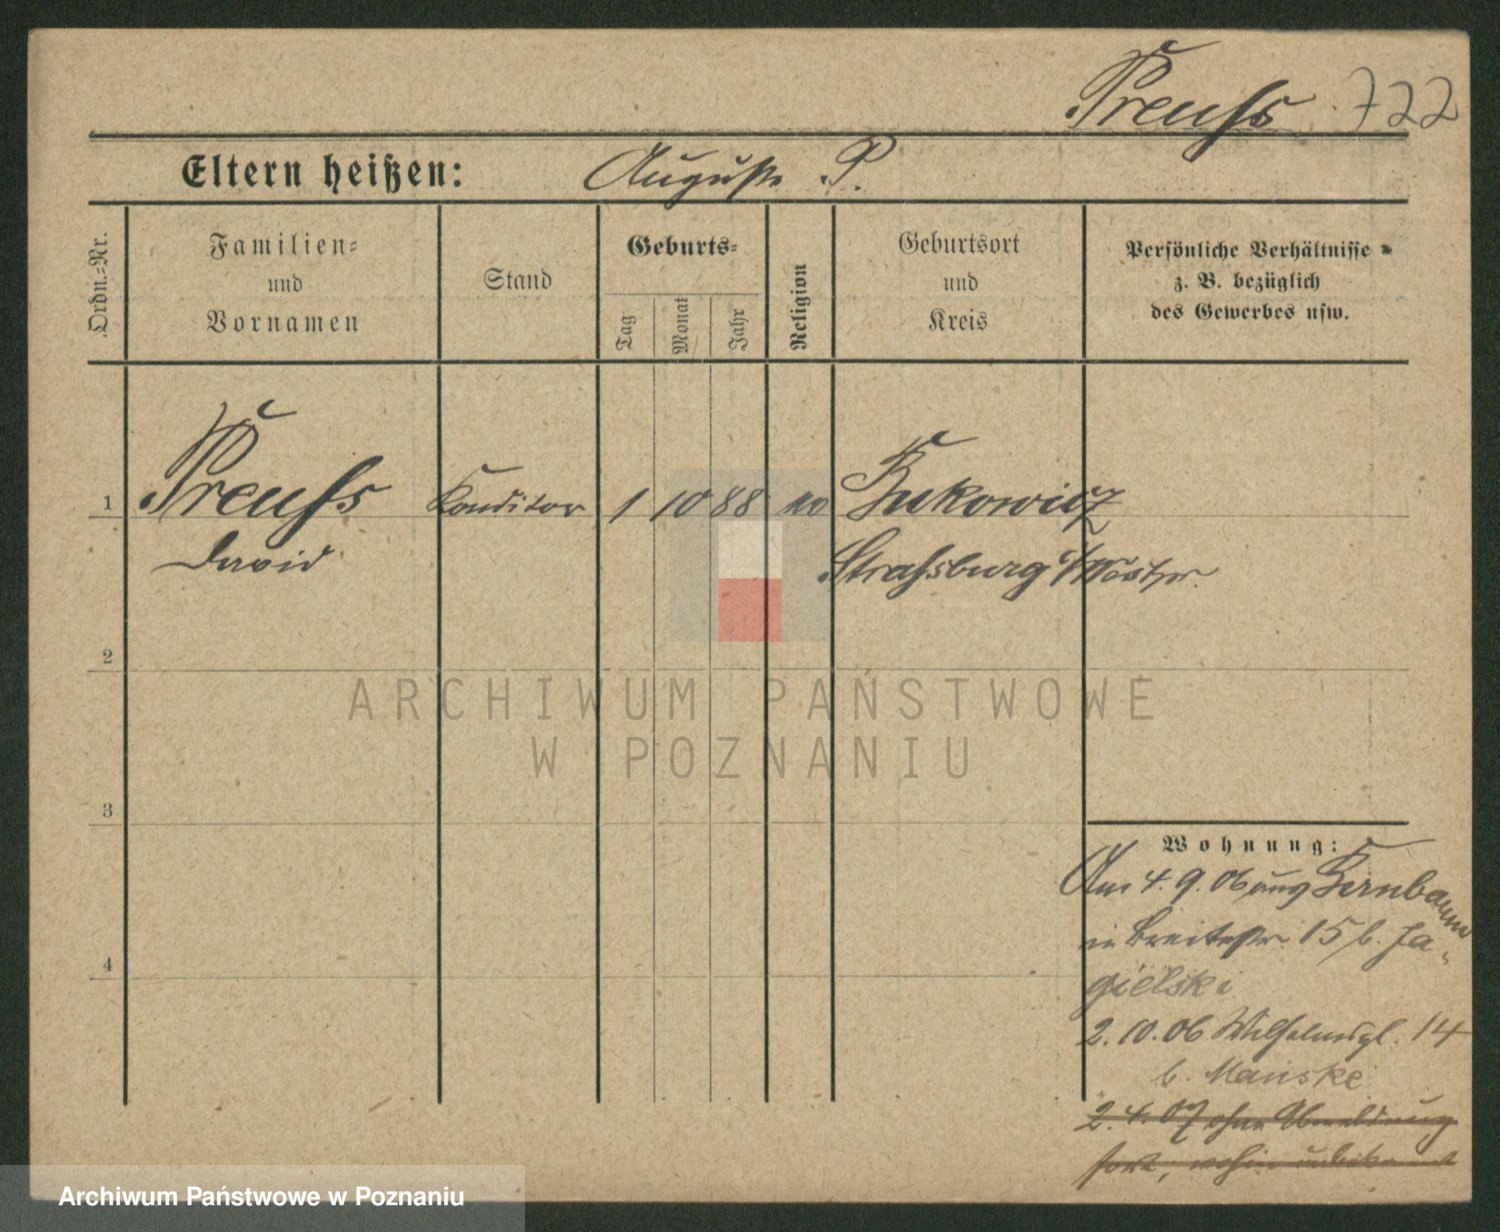 Preuss 722
Eltern heißen: Auguste P.
Ordn.-Nr.
Familien-
und
Vornamen
Stand
Geburts-
Tag
Monat
Jahr
Religion
Geburtsort
und
Kreis
Persönliche Verhältnisse
z. B. bezüglich
des Gewerbes usw.
1 Preuss Konditor 1 10 88 Bukowicz
David Strassburg i/Westpr.
2
ARCHIWUM PAŃSTWOWE
W POZNANIU
3
Wohnung:
Am 4. 9. 06 aus Bernbaum
in Breitestr. 15 b. Ja-
gielski
2. 10. 06 Wilhelmspl. 14
b. Manske
2. 4. 07 ohne Abmeldung
fort, wohin unbekannt
4
Archiwum Państwowe w Poznaniu